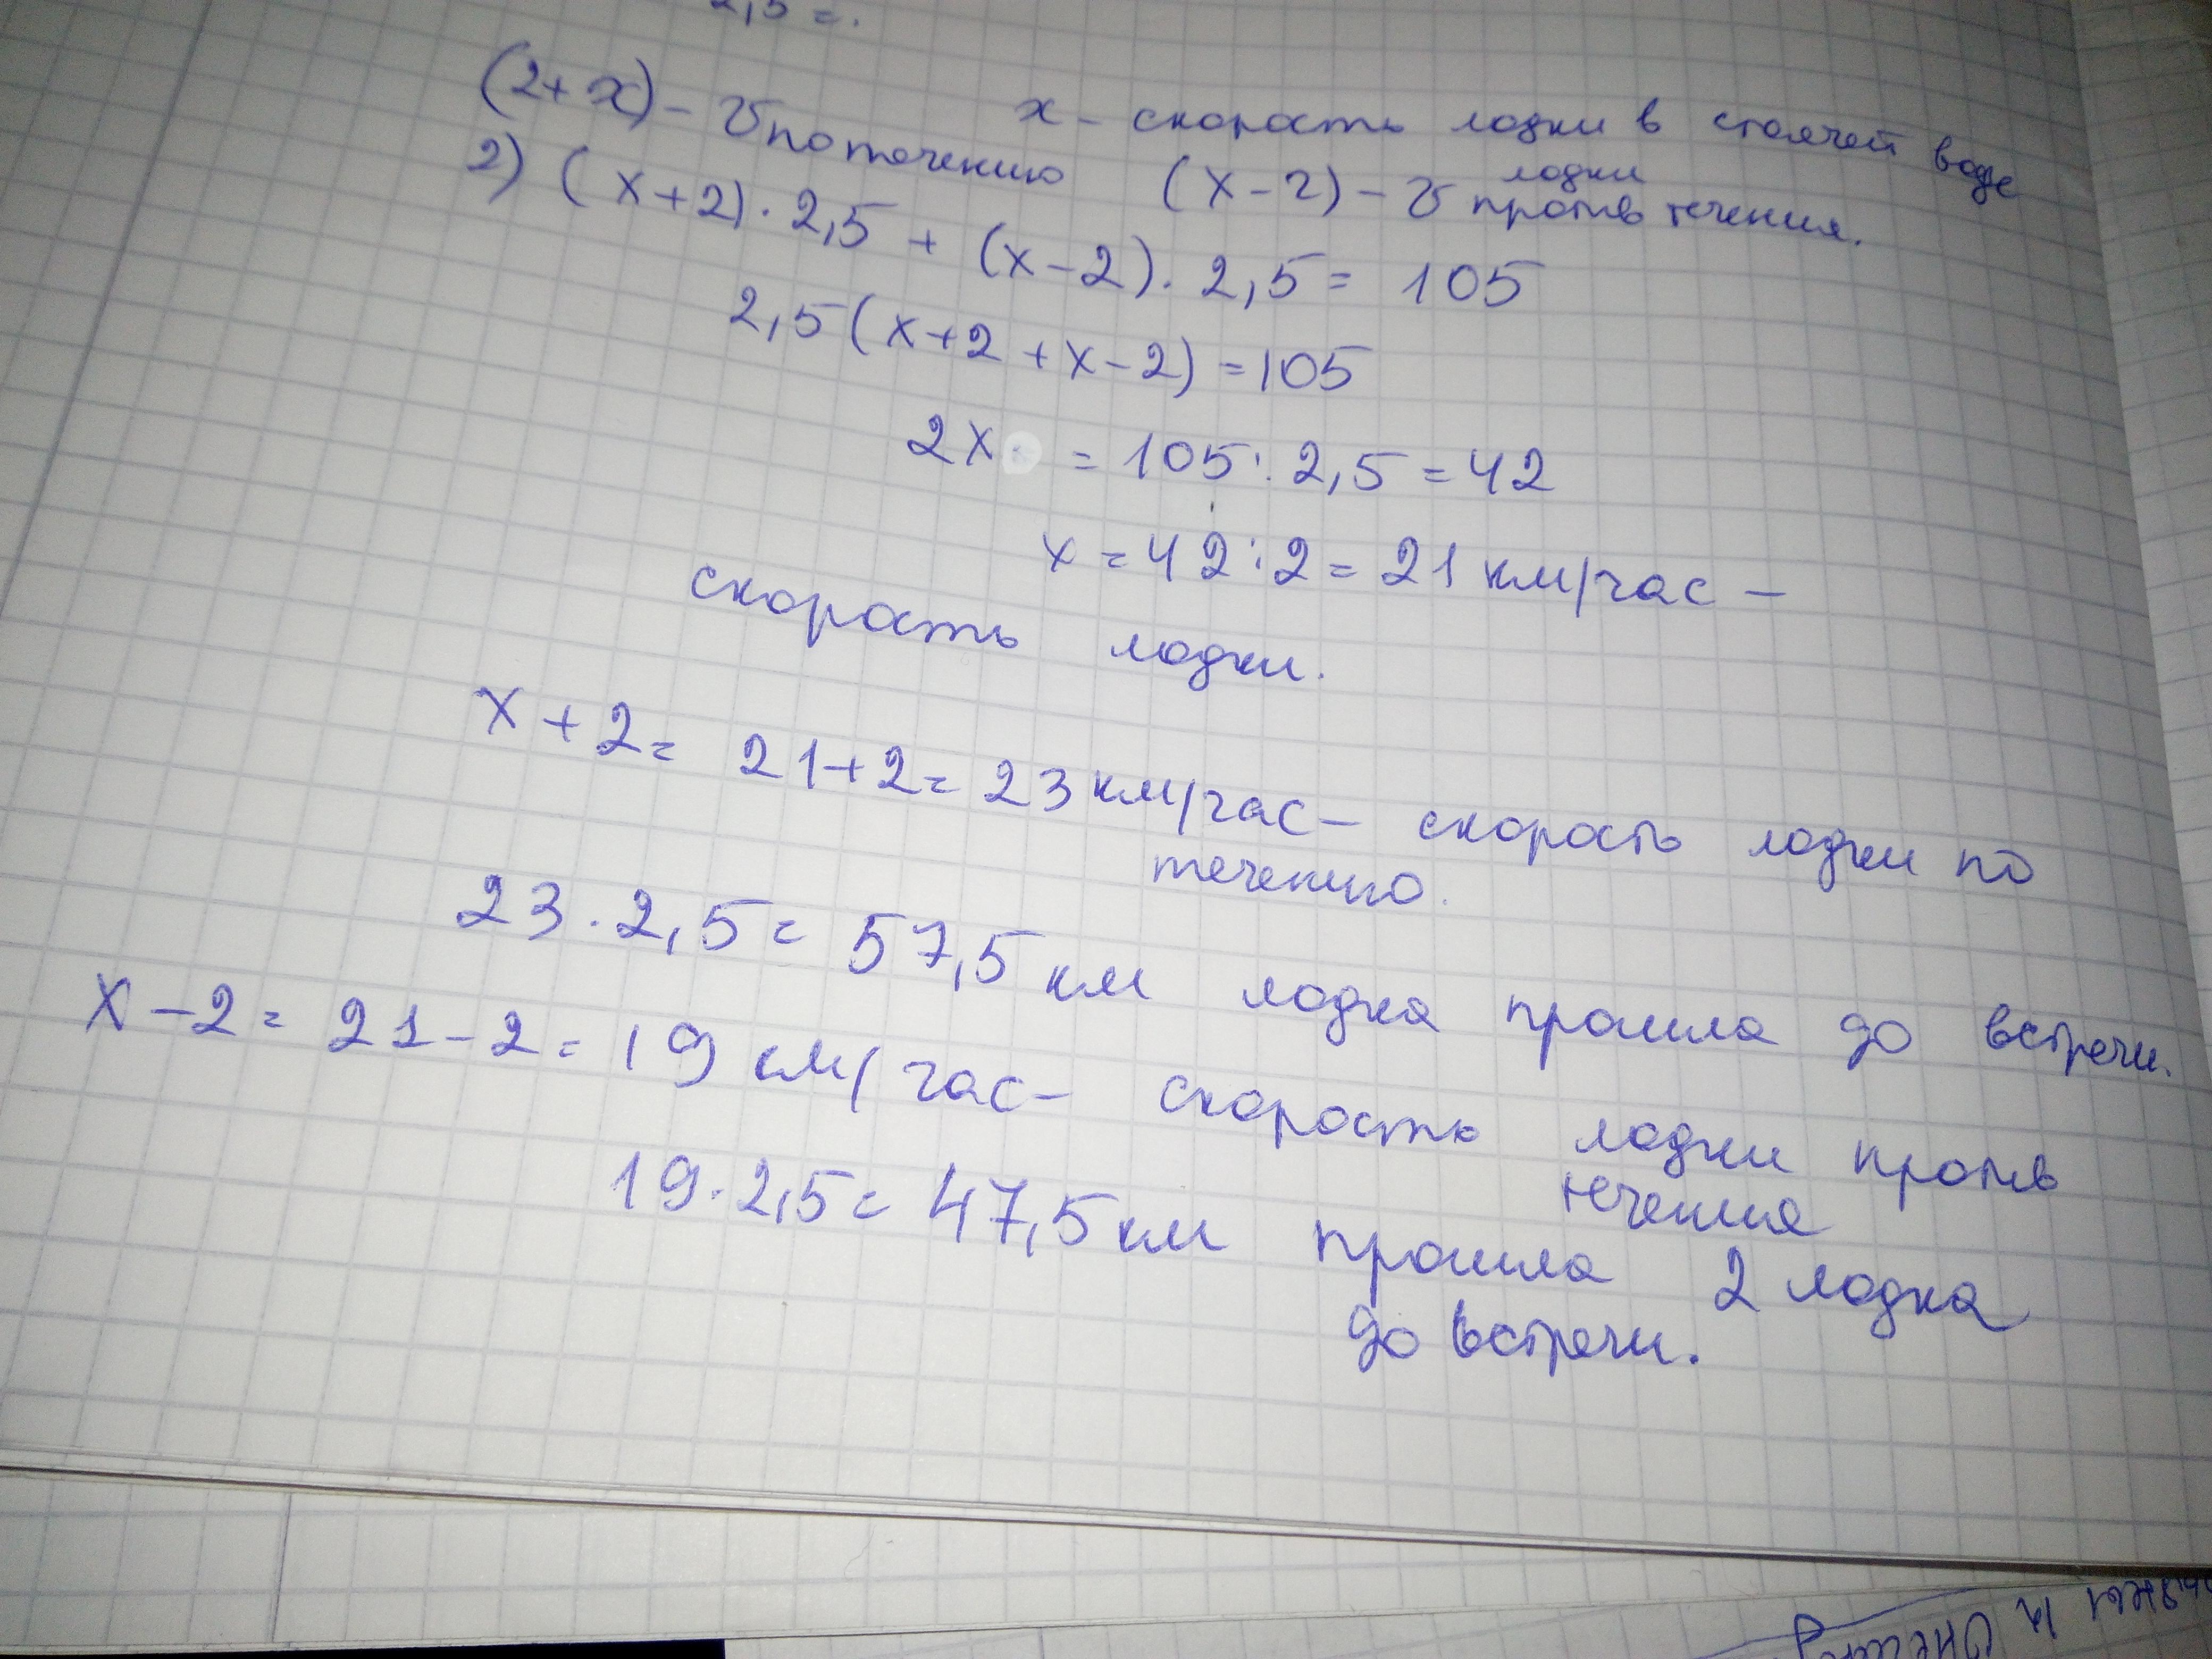 2,5 =.
х - скорость лодки в стоячей воде
(2+х) - υ по течению
(х-2) - υ лодки против течения.
2) (х+2)·2,5 + (х-2)·2,5 = 105
2,5(х+2+х-2) =105
2х = 105:2,5 = 42
х = 42:2 = 21 км/час -
скорость лодки.
х + 2 = 21+2 = 23 км/час - скорость лодки по
течению.
23·2,5 = 57,5 км лодка прошла до встречи.
х - 2 = 21 - 2 = 19 км/час - скорость лодки против
течения
19·2,5 = 47,5 км прошла 2 лодка
до встречи.